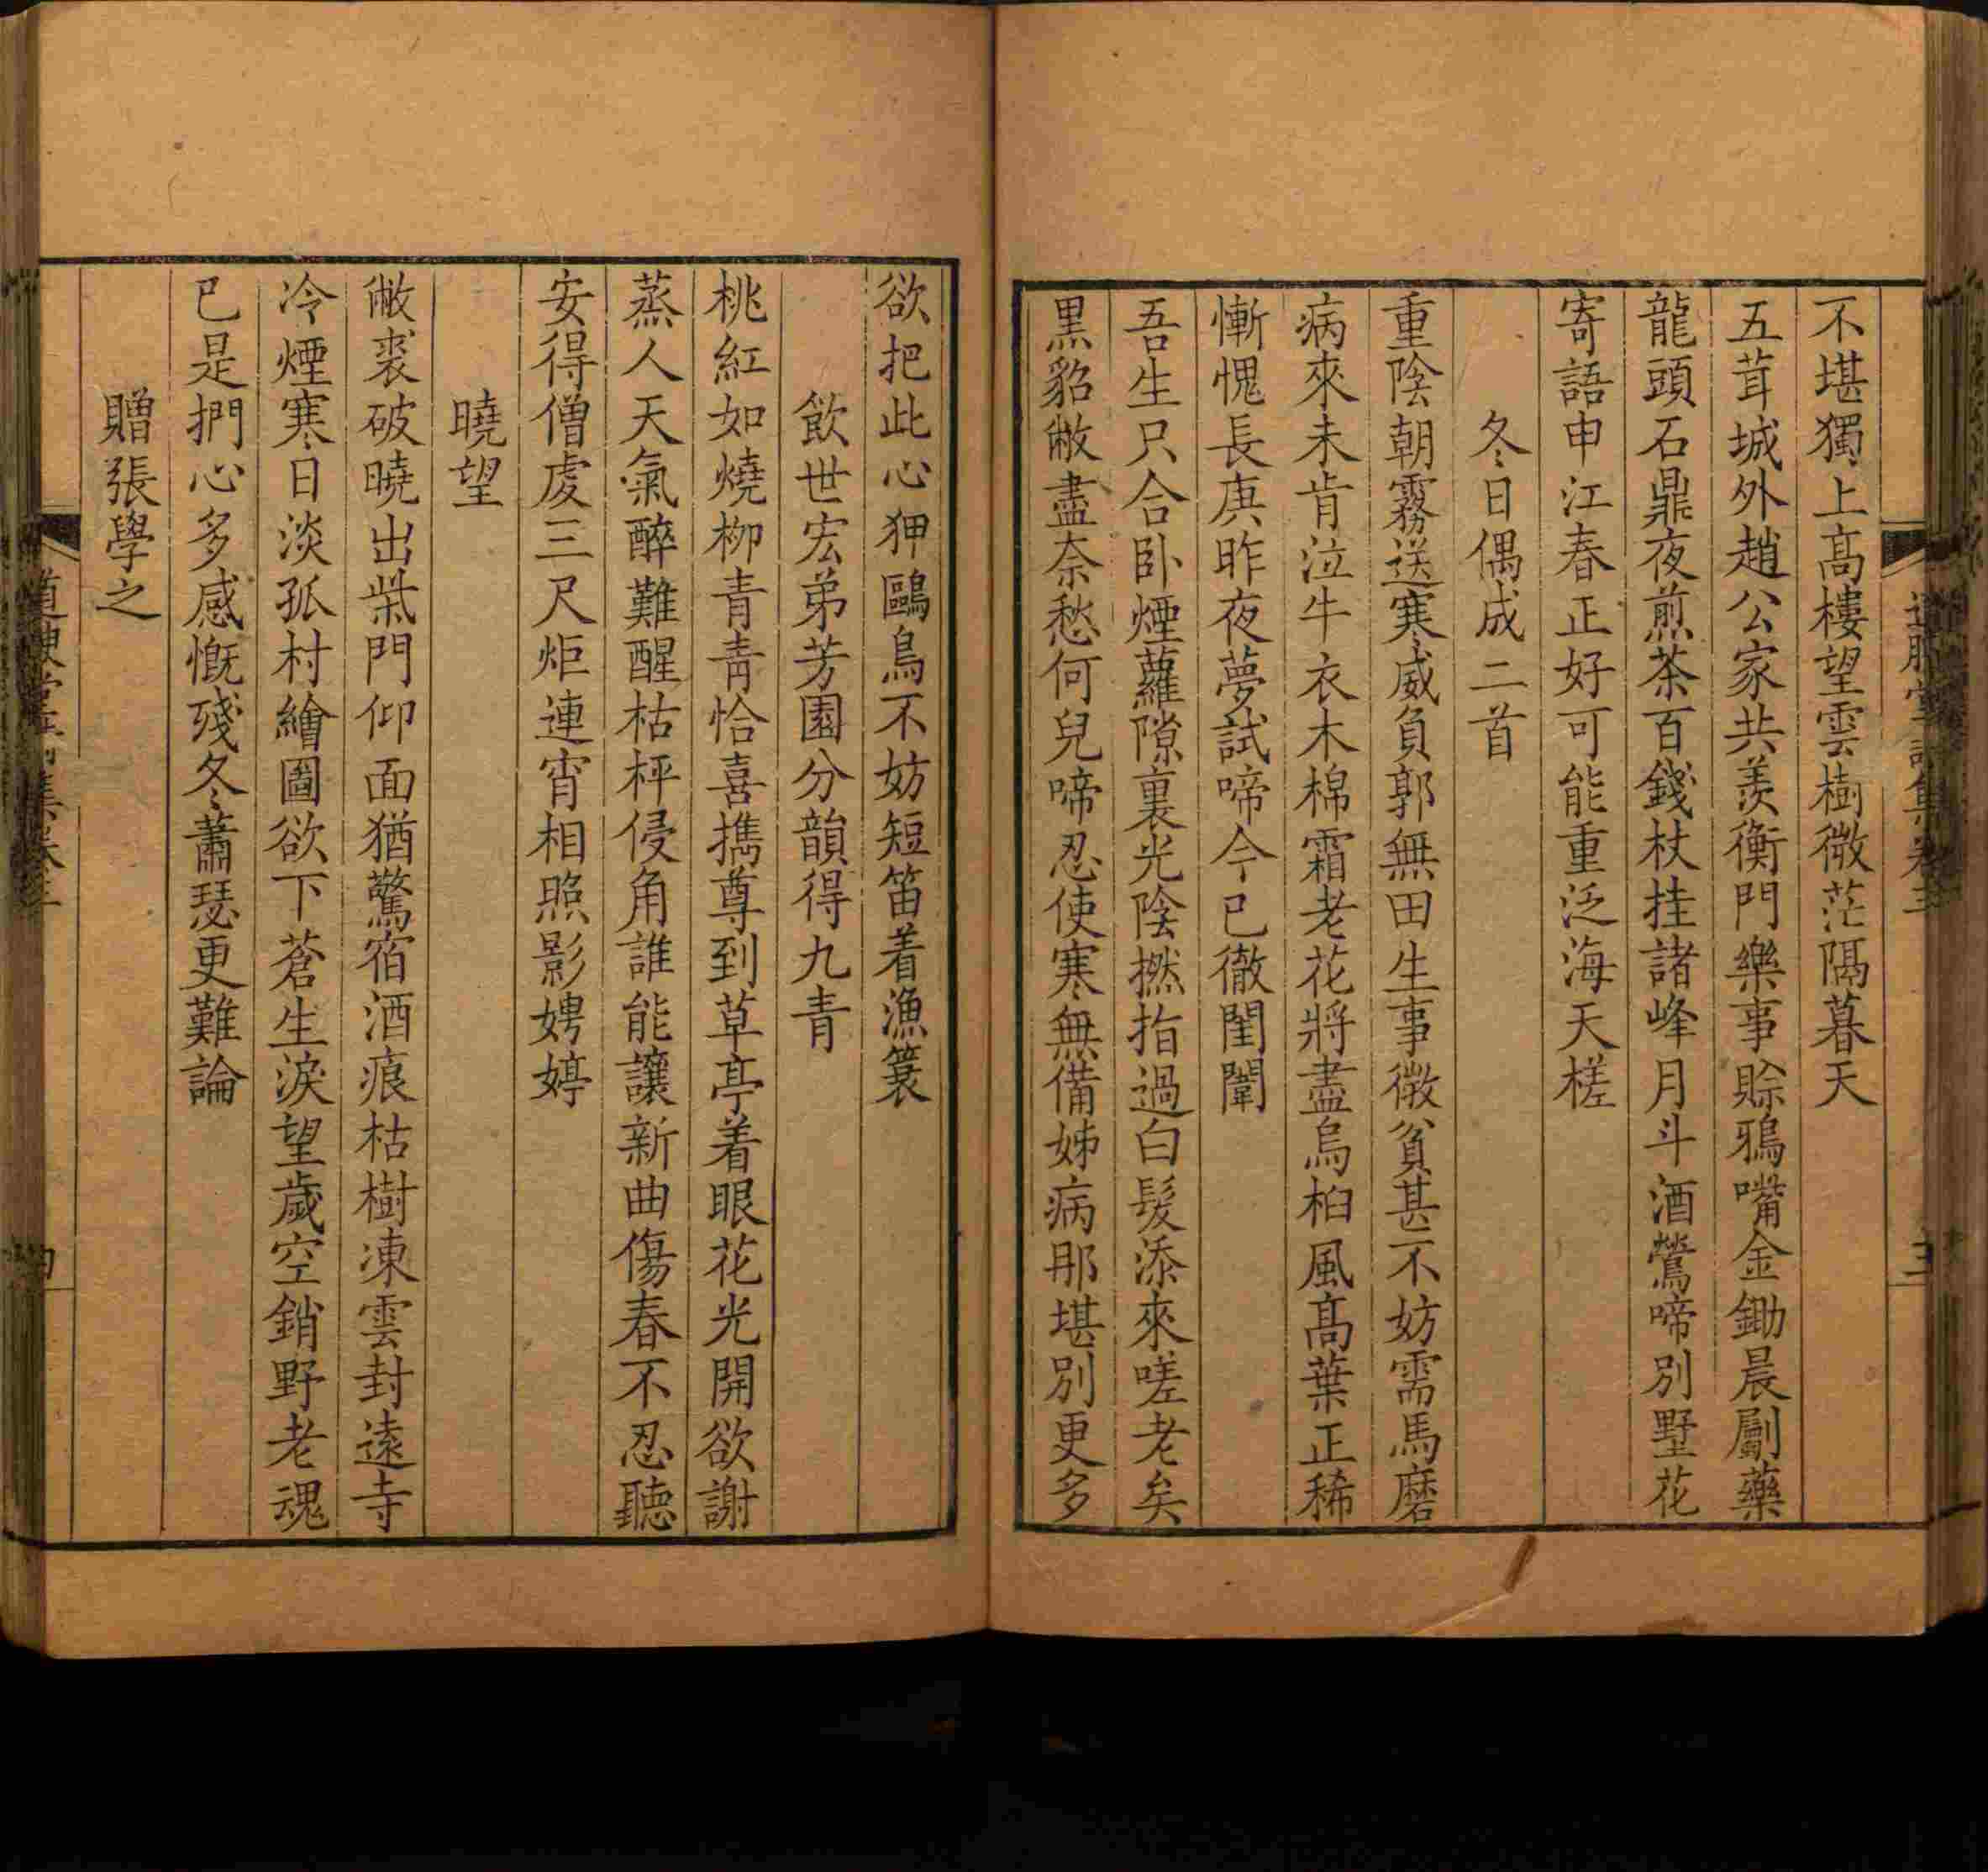 不堪獨上高樓望雲樹微茫隔暮天
五茸城外趙公家共羨衡門樂事賒鴉嘴金鋤晨劚藥
龍頭石鼎夜煎茶百錢杖挂諸峰月斗酒鶯啼別墅花
寄語申江春正好可能重泛海天槎
冬日偶成二首
重陰朝霧送寒威負郭無田生事微貧甚不妨需馬磨
病來未肯泣牛衣木棉霜老花將盡烏桕風高葉正稀
慚愧長庚昨夜夢試啼今已徹閨闈
吾生只合卧煙蘿隙裏光陰撚指過白髮添來嗟老矣
黒貂敝盡奈愁何兒啼忍使寒無備姊病那堪別更多
欲把此心狎鷗鳥不妨短笛着漁簑
飲世宏弟芳園分韻得九青
桃紅如燒栁青青恰喜擕尊到草亭着眼花光開欲謝
蒸人天氣醉難醒枯枰侵角誰能讓新曲傷春不忍聽
安得僧虔三尺炬連宵相照影娉婷
曉望
敝裘破曉出柴門仰面猶驚宿酒痕枯樹凍雲封遠寺
冷煙寒日淡孤村繪圖欲下蒼生淚望歲空銷野老魂
已是捫心多感慨殘冬蕭瑟更難論
贈張學之